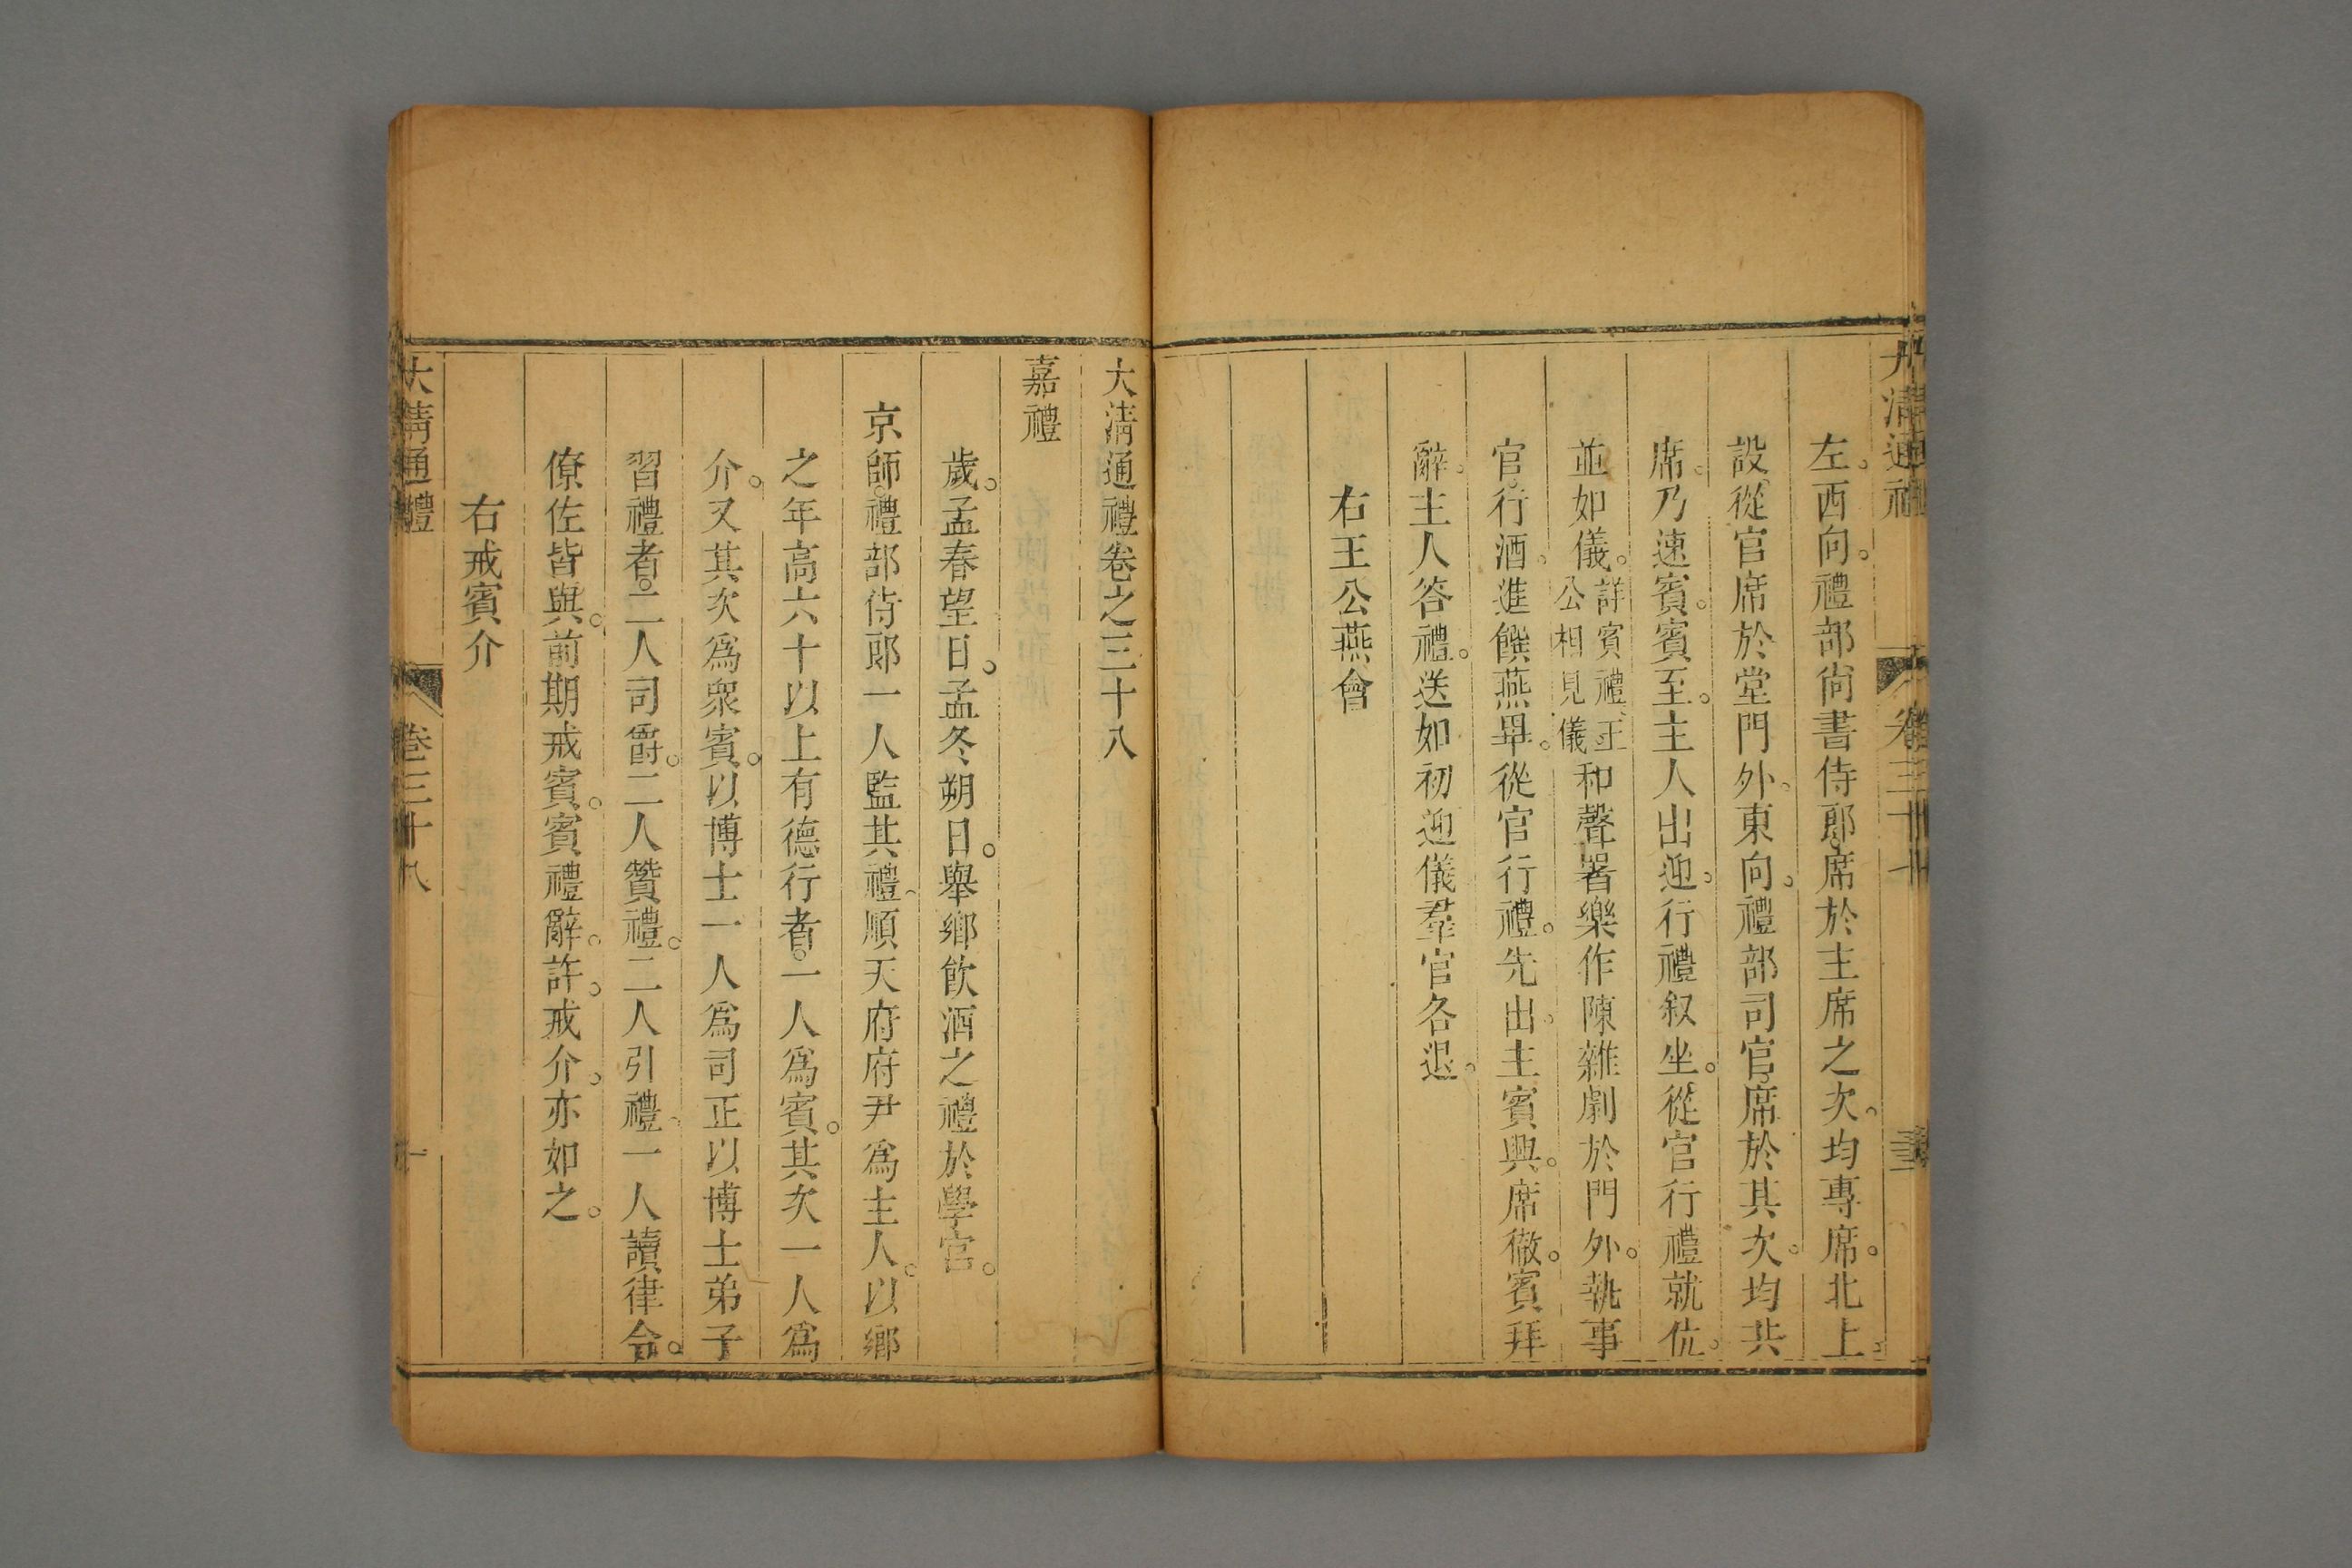 大清通禮 卷三十七
左。西向。禮部尙書侍郞。席於主席之次。均專席。北上。
設從官席於堂門外。東向。禮部司官。席於其次。均共
席。乃速賓。賓至。主人出迎。行禮叙坐。從官行禮就位。
並如儀。詳賓禮王公相見儀和聲署樂作陳雜劇於門外。執事
官。行酒。進饌燕畢。從官行禮。先出。主賓興。席徹。賓拜
辭。主人答禮。送如初迎儀。羣官各退。
右王公燕會
大清通禮卷之三十八
嘉禮
歲。孟春望日。孟冬朔日。舉鄉飮酒之禮於學宮。
京師。禮部侍郞一人監其禮。順天府府尹爲主人。以鄉
之年高六十以上有德行者。一人爲賓。其次一人爲
介。又其次爲衆賓。以博士一人爲司正以博士弟子
習禮者。二人司爵。二人贊禮。二人引禮。一人讀律令。
僚佐皆與。前期戒賓。賓禮辭。許。戒介。亦如之。
右戒賓介
大清通禮 卷三十八 一